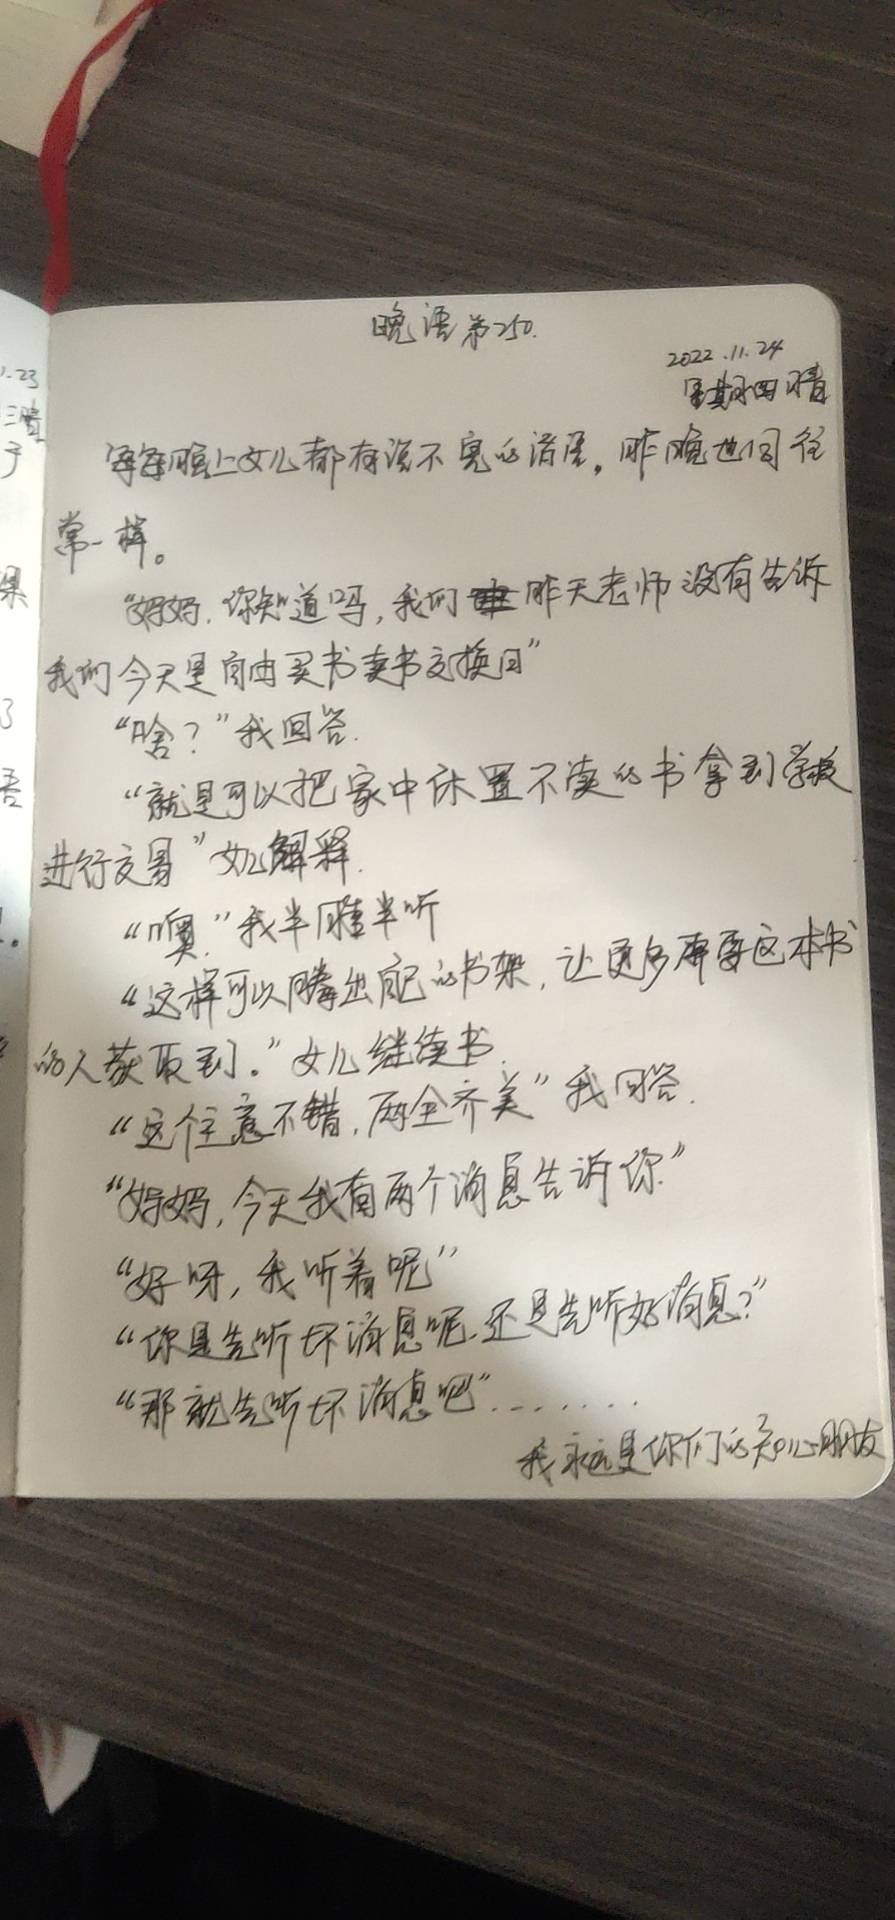 晚语第250.
2022.11.24
星期四 晴
每每晚上女儿都有说不完的话语。昨晚也同往
常一样。
“妈妈，你知道吗，我们昨天老师没有告诉
我们今天是自由买书卖书交换日”
“啥？”我回答.
“就是可以把家中休置不读的书拿到学校
进行交易”女儿解释.
“噢.”我半睡半听
“这样可以腾出自己的书架，让更多需要这本书
的人获取到。”女儿继续书.
“这个主意不错，两全齐美”我回答.
“妈妈，今天我有两个消息告诉你”
“好呀，我听着呢”
“你是先听坏消息呢，还是先听好消息？”
“那就先听坏消息吧”.......
我永远是你们的知心朋友
1.23
三 晴
了
果
了
吾